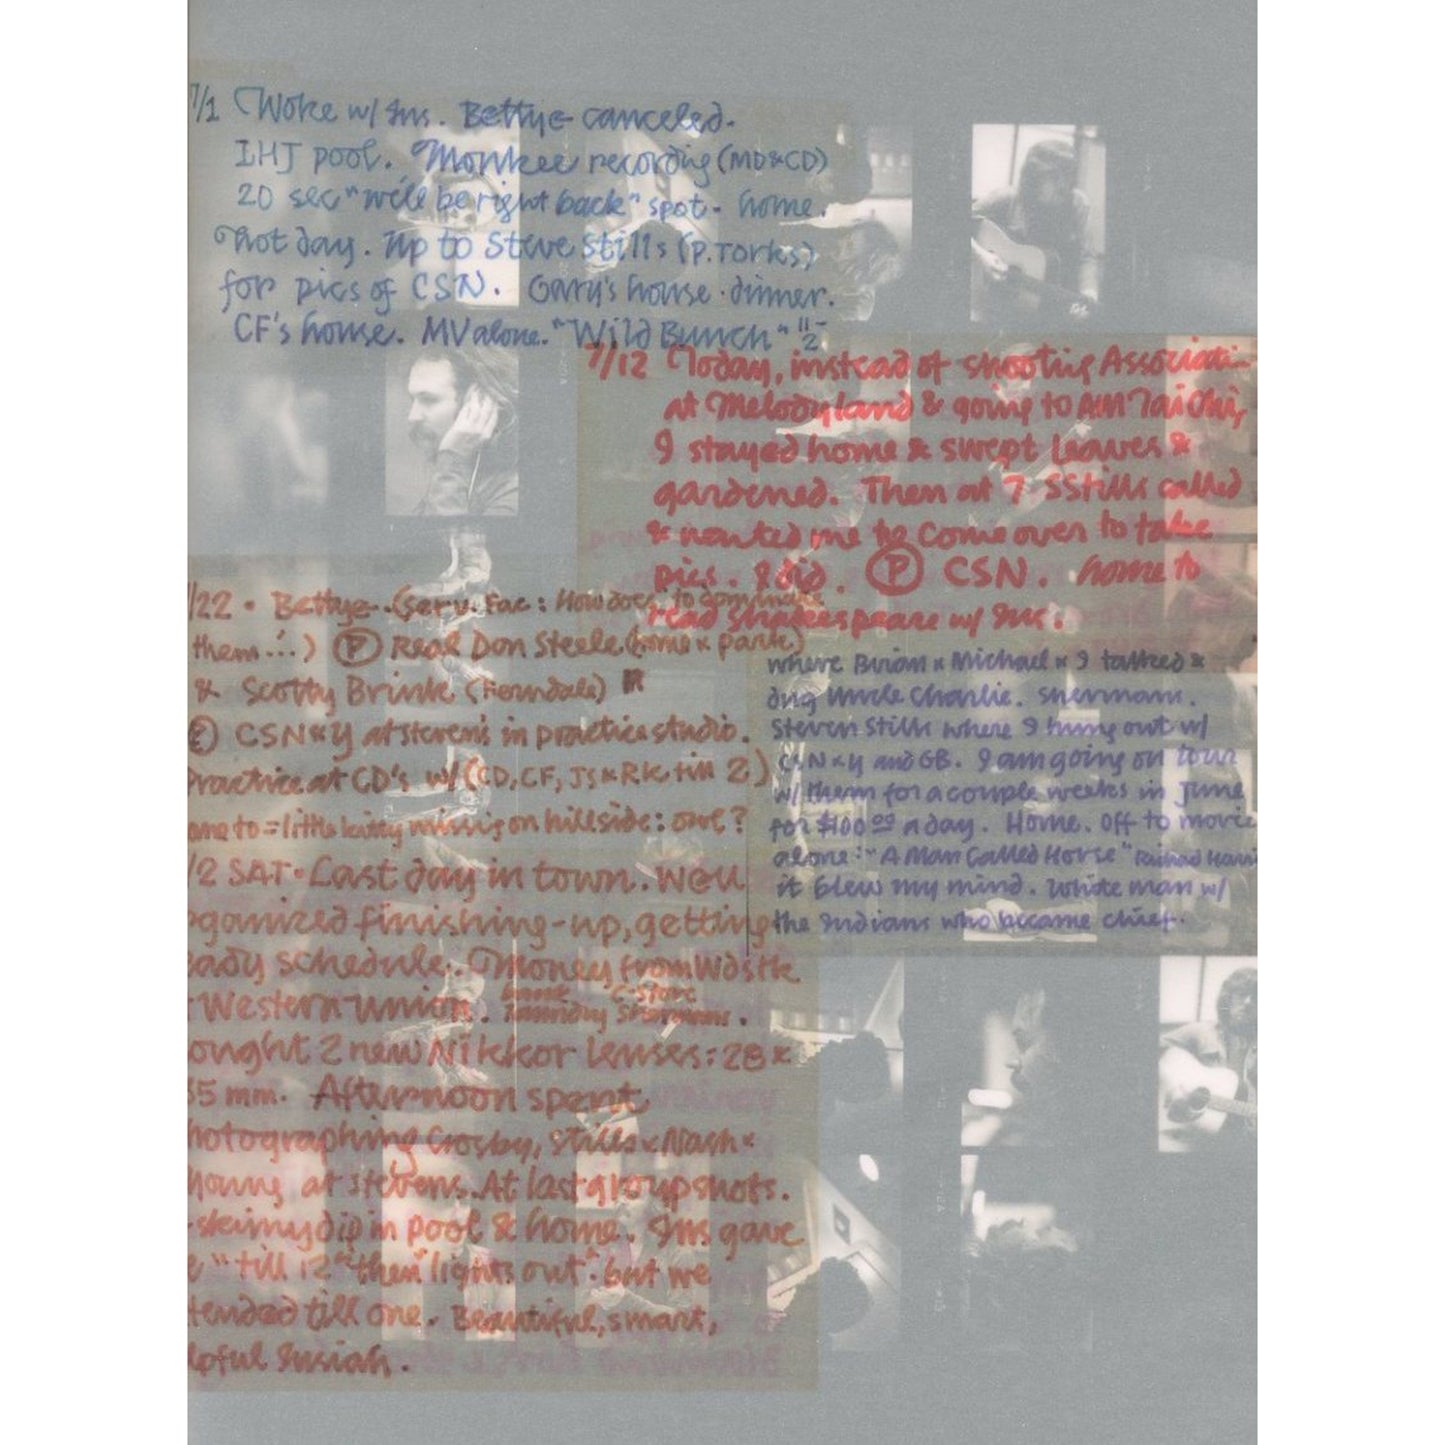 7/1 Woke w/ Sus. Bettye canceled.
LHJ pool. Monkee recording (MD&CD)
20 sec "we'll be right back" spot - home.
Hot day. Up to Steve Stills (P. Torks)
for pics of CSN. Gary's house - dinner.
CF's house. MV alone. "Wild Bunch" 11-2
7/12 Today, instead of shooting Associati-
at Melodyland & going to AM Tai Chi,
I stayed home & swept leaves &
gardened. Then at 7 SStills called
& wanted me to come over to take
pics. I did. (P) CSN. home to
read Shakespeare w/ Sus.
/22 - Bettye. (Serv. Fac: How does to dominate
them...) (P) Real Don Steele (home & park)
& Scotty Brink (Ferndale)
(P) CSN&Y at Steven's in practice studio.
Practice at CD's w/ (CD, CF, JS & RK till 2)
ame to = little kitty missing on hillside: owl?
/2 SAT - Last day in town. Well
ganized finishing-up, getting
eady schedule. Money from Wdstk
Western Union. bank C-store
laundry Shermans.
ought 2 new Nikkor lenses: 28 &
35 mm. Afternoon spent
hotographing Crosby, Stills & Nash &
Young at Stevens. At last group shots.
-skinny dip in pool & home. Sus gave
e "till 12" then "lights out" but we
tended till one. Beautiful, smart,
lpful Susiah.
where Brian & Michael & I talked &
dug Uncle Charlie. Shermans.
Steven Stills where I hung out w/
CSN & Y and GB. I am going on tour
w/ them for a couple weeks in June
for $100.00 a day. Home. Off to movie
alone: "A Man Called Horse" Richard Harri
it blew my mind. White man w/
the Indians who became chief.